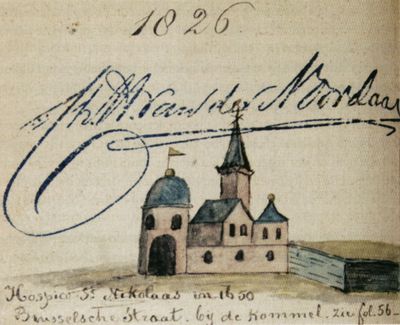 1826.
Ch. W. van der Noordaa
Hospice St Nikolaas in 1650
Brusselsche Straat. bij de Kommel. zie fol. 56-